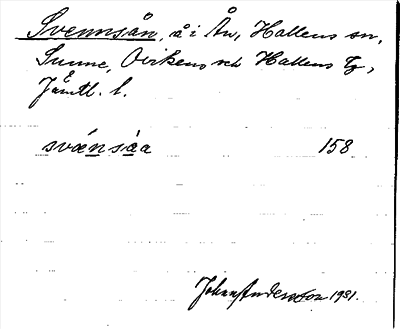 Svennsån, å i Ån, Hallens sn,
Sunne, Ovikens och Hallens tg,
Jämtl. l.
svǽnsā̀a 158
Johan Anderson 1931.